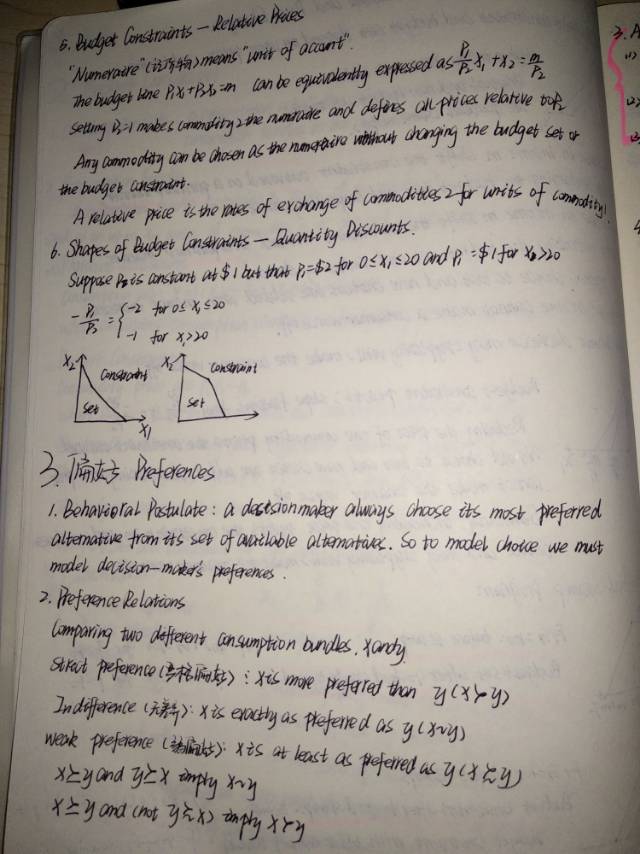 5. Budget Constraints — Relative Prices
"Numeraire" (计价物) means "unit of account".
The budget line P₁x₁+P₂x₂=m can be equivalently expressed as P₁/P₂ x₁ + x₂ = m/P₂
Setting P₂=1 makes commodity 2 the numeraire and defines all prices relative to P₂
Any commodity can be chosen as the numeraire without changing the budget set or
the budget constraint.
A relative price is the rates of exchange of commodities 2 for units of commodity 1.
6. Shapes of Budget Constraints — Quantity Discounts.
Suppose P₂ is constant at $1 but that P₁=$2 for 0≤x₁≤20 and P₁=$1 for x₂>20
-P₁/P₂ = { -2 for 0≤x₁≤20
-1 for x₁>20
x₂ constraint x₂ constraint
set set
x₁
3. 偏好 Preferences
1. Behavioral Postulate: a decisionmaker always choose its most preferred
alternative from its set of available alternatives. So to model choice we must
model decision-maker's preferences.
2. Preference Relations
Comparing two different consumption bundles, x and y
strict preference (严格偏好): x is more preferred than y (x≻y)
Indifference (无差异): x is exactly as preferred as y (x~y)
weak preference (弱偏好): x is at least as preferred as y (x≿y)
x≿y and y≿x imply x~y
x≿y and (not y≿x) imply x≻y
3. A
(1)
(2)